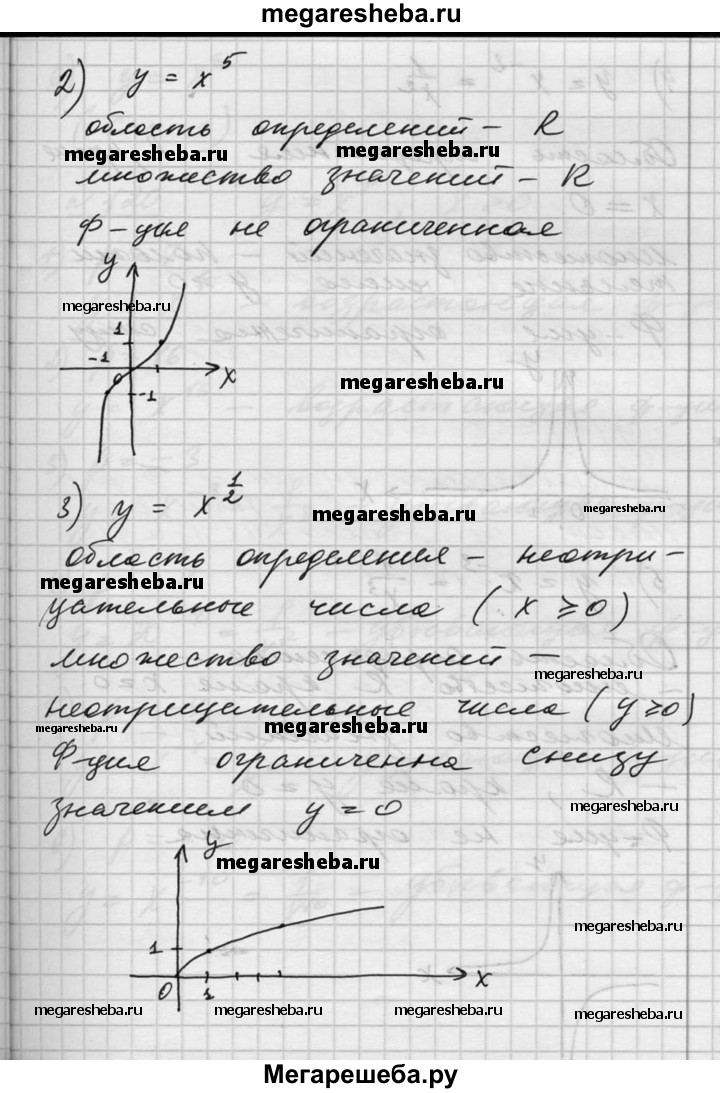 megaresheba.ru
2) y = x^5
область определений - R
megaresheba.ru megaresheba.ru
множество значений - R
ф-ция не ограниченная
y
megaresheba.ru
1
-1
0
x
-1
megaresheba.ru
3) y = x^{1/2}
megaresheba.ru megaresheba.ru
область определения - неотри-
megaresheba.ru
цательные числа (x ≥ 0)
множество значений -
megaresheba.ru
неотрицательные числа (y ≥ 0)
megaresheba.ru megaresheba.ru
Ф-ция ограниченна снизу
значением y = 0
megaresheba.ru
y
megaresheba.ru
megaresheba.ru
1
0 1 x
megaresheba.ru megaresheba.ru megaresheba.ru
megaresheba.ru
Мегарешеба.ру